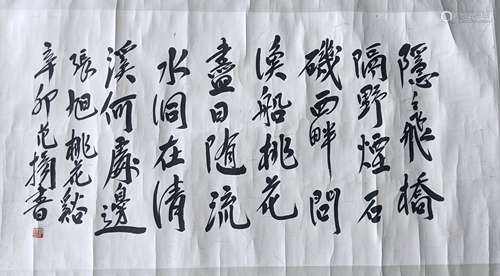 隱々飛橋
隔野煙石
磯西畔問
漁船桃花
盡日随流
水洞在清
溪何處邊
張旭桃花谿
辛卯范揚書